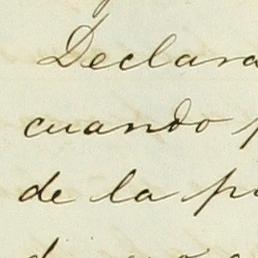 Declara
cuando p
de la p